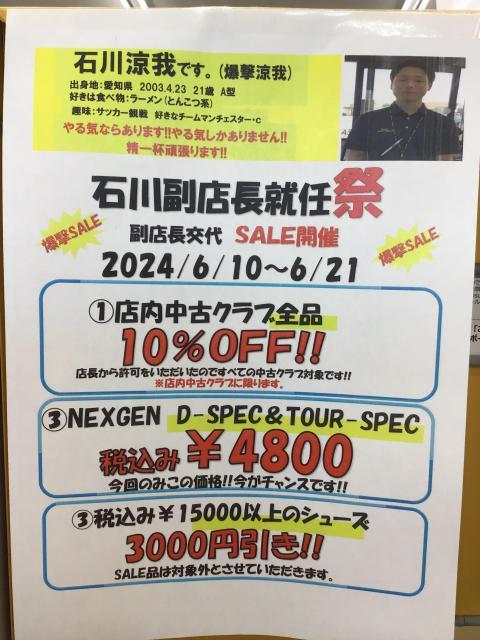 石川涼我です。(爆撃涼我)
出身地:愛知県 2003.4.23 21歳 A型
好きは食べ物:ラーメン(とんこつ系)
趣味:サッカー観戦 好きなチームマンチェスター・c
やる気ならあります!!やる気しかありません!!
精一杯頑張ります!!
石川副店長就任祭
爆撃SALE
副店長交代 SALE開催
爆撃SALE
2024/6/10~6/21
①店内中古クラブ全品
10%OFF!!
店長から許可をいただいたのですべての中古クラブ対象です!!
※店内中古クラブに限ります。
③NEXGEN D-SPEC&TOUR-SPEC
税込み¥4800
今回のみこの価格!!今がチャンスです!!
③税込み¥15000以上のシューズ
3000円引き!!
SALE品は対象外とさせていただきます。